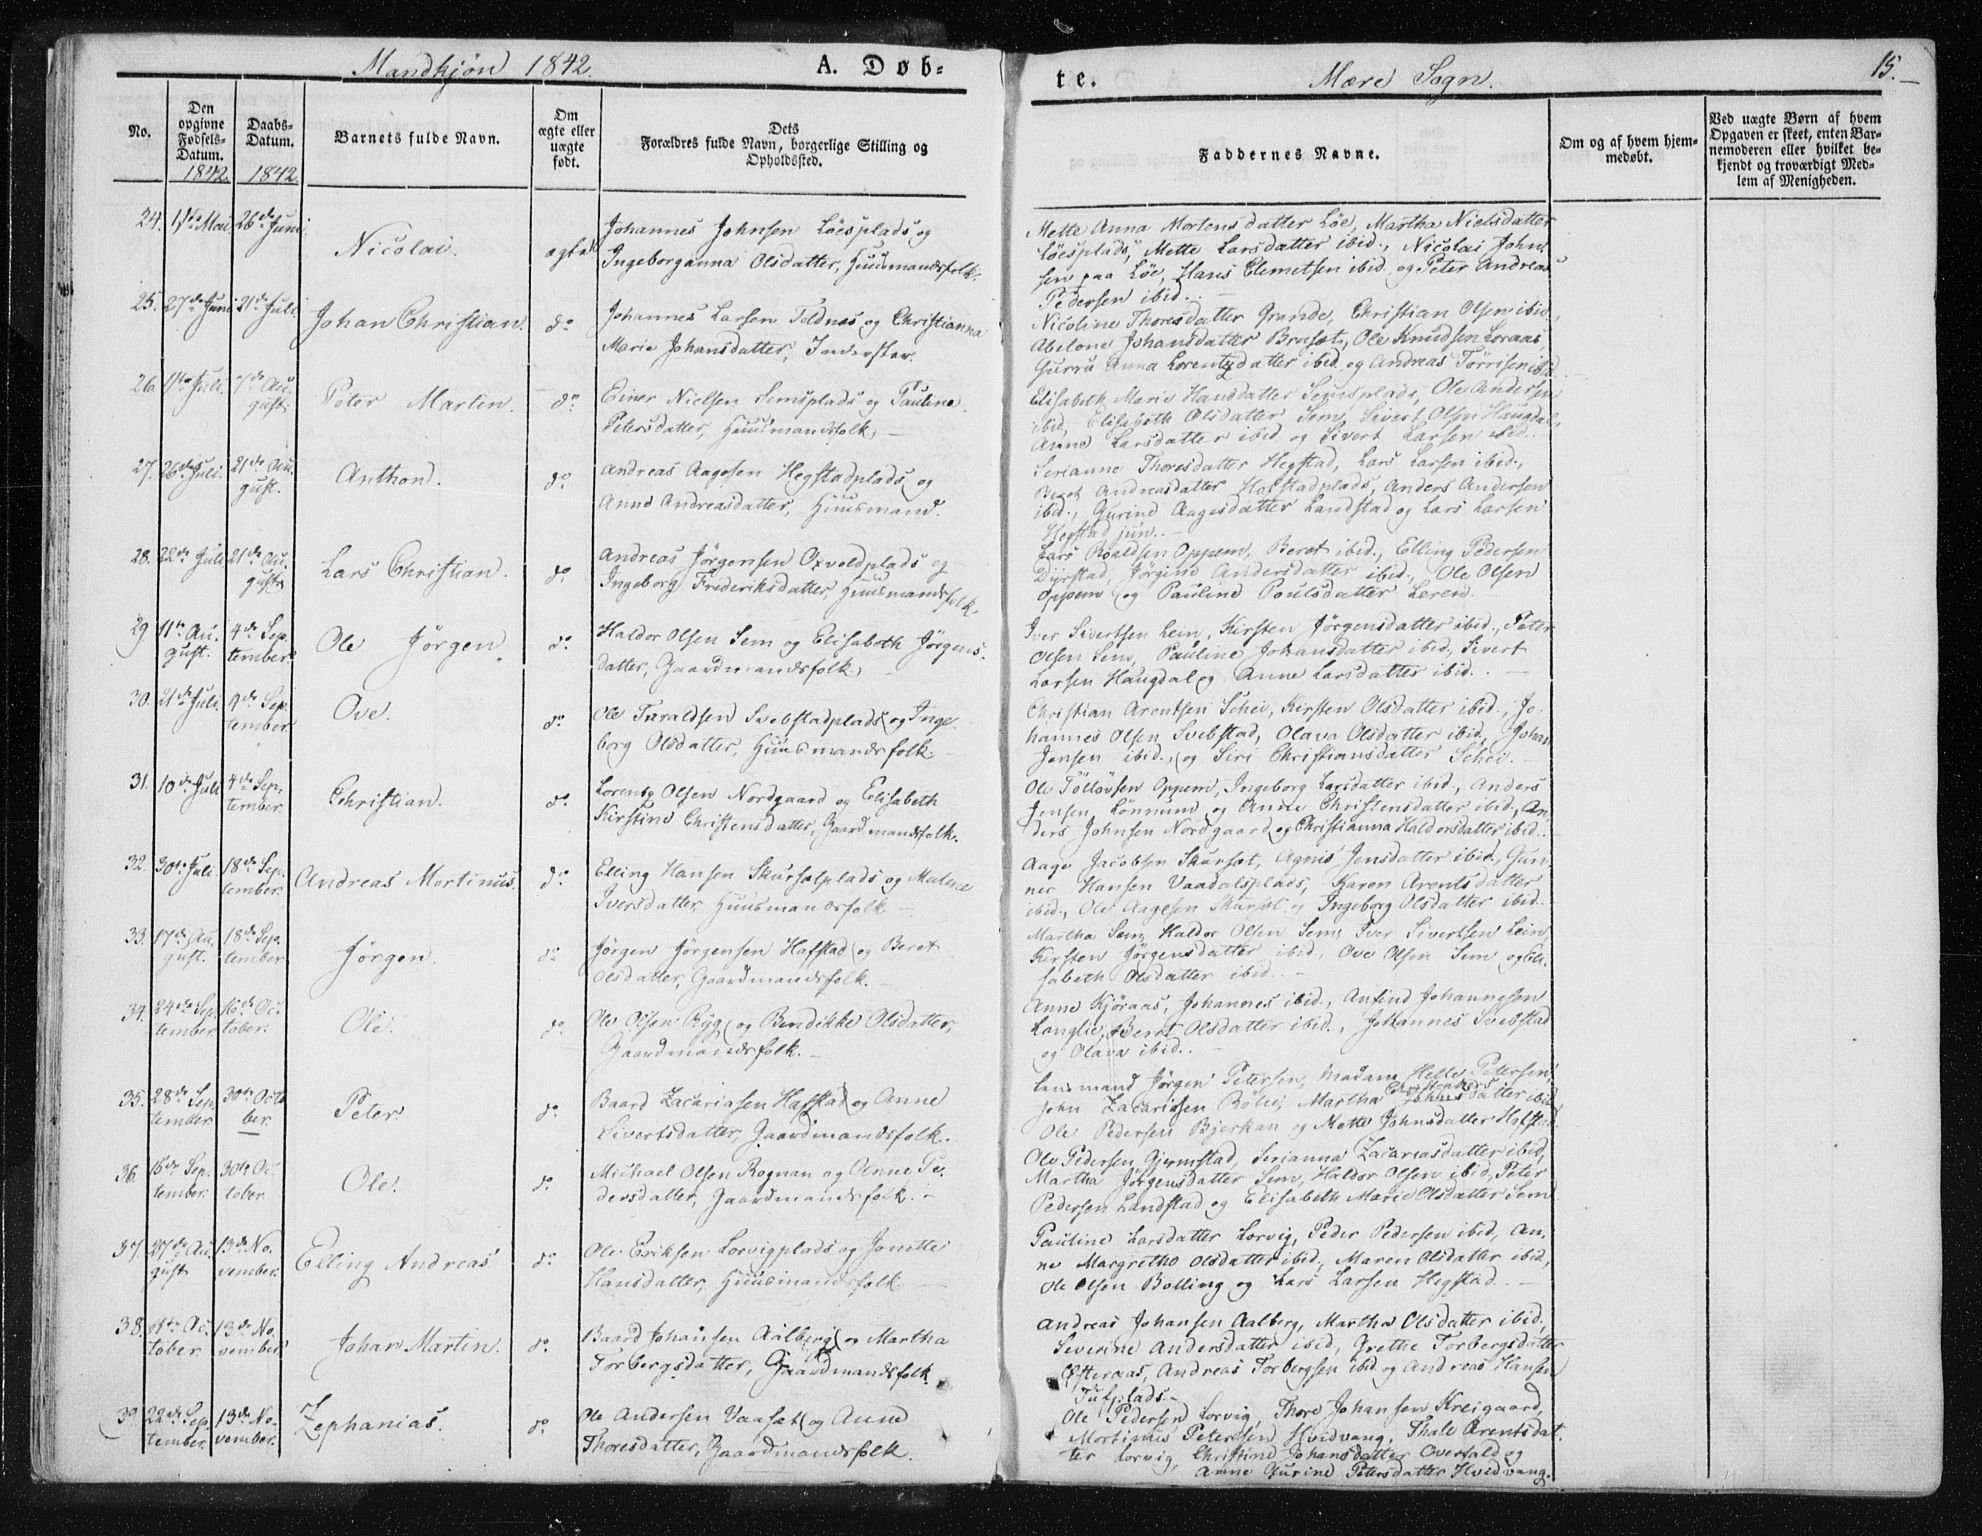 Mandkjøn 1842.
A. Døb-
te.
Mære Sogn.
15.
No.
Den opgivne Fødsels-Datum. 1842
Daabs-Datum. 1842
Barnets fulde Navn.
Om ægte eller uægte født.
Dets Forældres fulde Navn, borgerlige Stilling og Opholdssted.
Faddernes Navne.
Om og af hvem hjemmedøbt.
Ved uægte Børn af hvem
Opgaven er skeet, enten Bar-
nemoderen eller hvilket be-
kjendt og troværdigt Med-
lem af Menigheden.
24. Mai 26de Juni Nicolai. ægte
Johannes Johnsen Löesplads og
Ingeborganna Olsdatter, Huusmandsfolk.
Mette Anna Mortensdatter Löe, Martha Nielsdatter
Löesplads, Mette Larsdatter ibid., Nicolai John-
sen paa Löe, Hans Clemetsen ibid. og Peter Andreas
Pedersen ibid.
25. 27de Juni 21de Juli Johan Christian. do
Johannes Larsen Foldnes og Christianna
Maria Johansdatter, Inderster.
Nicoline Thoresdatter Grande, Christian Olsen ibid.,
Abelone Johansdatter Brusæt, Ole Knudsen Loraas,
Gurru Anna Lorentzdatter ibid. og Andreas Törrisen ibid.
26. 11te Juli. 7de August. Peter Martin. do
Einer Nielsen Semsplads og Pauline
Petersdatter, Huusmandsfolk
Elisabeth Marie Hansdatter Semsplads, Ole Andersen
ibid, Elisabeth Olsdatter Sem, Sivert Olsen Haugdal,
Anne Larsdatter ibid og Sivert Larsen ibid.
27. 26de Juli. 21de August. Anthon. do
Andreas Aagesen Hegstadplads og
Anne Andreasdatter, Huusmand.
Serianne Thoresdatter Hegstad, Lars Larsen ibid.,
Beret Andreasdatter Hafstadplads, Anders Andersen
ibid., Gurine Aagesdatter Landstad og Lars Larsen
Hegstad jun.
28. 22de Juli 21de August Lars Christian. do
Andreas Jörgensen Oxvoldplads og
Ingeborg Frederiksdatter, Huusmandsfolk.
Lars Roaldsen Oppem, Beret ibid., Elling Pedersen
Dyrstad, Jörgine Andersdatter ibid., Ole Olsen
Oppem og Pauline Poulsdatter Leren.
29 11te August. 4de September Ole Jörgen do
Haldor Olsen Sem og Elisabeth Jörgens-
datter, Gaardmandsfolk
Iver Sivertsen Lein, Kirsten Jörgensdatter ibid., Peter
Olsen Sem, Pauline Johansdatter ibid, Sivert
Larsen Haugdal og Anne Larsdatter ibid.
30. 21de Juli. 4de September. Ove. do
Ole Taraldsen Svebstadplads og Inge-
borg Olsdatter, Huusmandsfolk.
Christian Arentsen Schei, Kirsten Olsdatter ibid., Jo-
hannes Olsen Svebstad, Olava Olsdatter ibid, Johan
Jensen ibid., og Siri Christiansdatter Schei.
31. 10de Juli 4de September. Christian. do
Lorentz Olsen Nordgaard og Elisabeth
Kirstine Christensdatter, Gaardmandsfolk.
Ole Töllövsen Oppem, Ingeborg Larsdatter ibid., Anders
Jensen Lönnum og Anne Christensdatter ibid., An-
ders Johnsen Nordgaard og Christianna Haldorsdatter ibid.
32. 30te Juli. 18de September. Andreas Martinus. do
Elling Hansen Skursætplads og Malene
Iversdatter, Huusmandsfolk.
Aage Jacobsen Skursæt, Agnis Jensdatter ibid., Gun-
ner Hansen Vaadalsplads, Karen Arentsdatter
ibid., Ole Aagesen Skursæt og Ingeborg Olsdatter ibid.
33. 17de August. 18de September Jörgen. do
Jörgen Jörgensen Hafstad og Beret
Olsdatter, Gaardmandsfolk.
Martha Sem, Haldor Olsen Sem, Iver Sivertsen Lein
Kirsten Jörgensdatter ibid, Ove Olsen Sem og Eli-
sabeth Olsdatter ibid.
34. 24de September 16de October. Ole. do
Ole Olsen Ryg og Bendikke Olsdatter,
Gaardmandsfolk.
Anne Kjöraas, Johannes ibid., Anfind Johannesen
Langlie, Beret Olsdatter ibid., Johannes Svebstad
og Olava ibid.
35. 28de September 30te October. Peter do
Baard Zacariasen Hafstad og Anne
Sivertsdatter, Gaardmandsfolk.
Lensmand Jörgen Petersen, Madam Helle Petersen,
John Zacariasen Martha datter ibid,
Ole Pedersen Bjerkan og Mette Johnsdatter Hafstad
36. 15de September. 30te October. Ole. do
Michael Olsen Rognan og Anne Pe-
dersdatter, Gaardmandsfolk.
Ole Pedersen Gjermstad, Serianna Zacariasdatter ibid,
Martha Jörgensdatter Sem, Haldor Olsen ibid, Peter
Pedersen Landstad og Elisabeth Marie Olsdatter Sem
37. 27de August 13de November. Elling Andreas do
Ole Eriksen Lorvigplads og Jonette
Hansdatter, Huusmandsfolk
Pauline Larsdatter Lorvig, Peder Pedersen ibid, An-
ne Margrethe Olsdatter ibid., Maren Olsdatter ibid,
Ole Olsen Bolling og Lars Larsen Hegstad.
38. 11te October. 13de November. Johan Martin. do
Baard Johansen Aalberg og Martha
Torbergsdatter, Gaardmandsfolk.
Andreas Johansen Aalberg, Martha Olsdatter ibid.,
Severine Andersdatter ibid, Grethe Torbergsdatter
Österaas, Andreas Torbergsen ibid og Andreas Hansen
Tufplads.
39. 22de September. 13de November. Zephanias. do
Ole Andersen Vaasæt og Anne
Thoresdatter, Gaardmandsfolk.
Ole Pedersen Lorvig, Thore Johansen Kreigaard,
Mortinus Petersen Hvidvang, Thale Arentsdat-
ter Lorvig, Christine Johansdatter Overfald og
Anne Gurine Petersdatter Hvidvang.